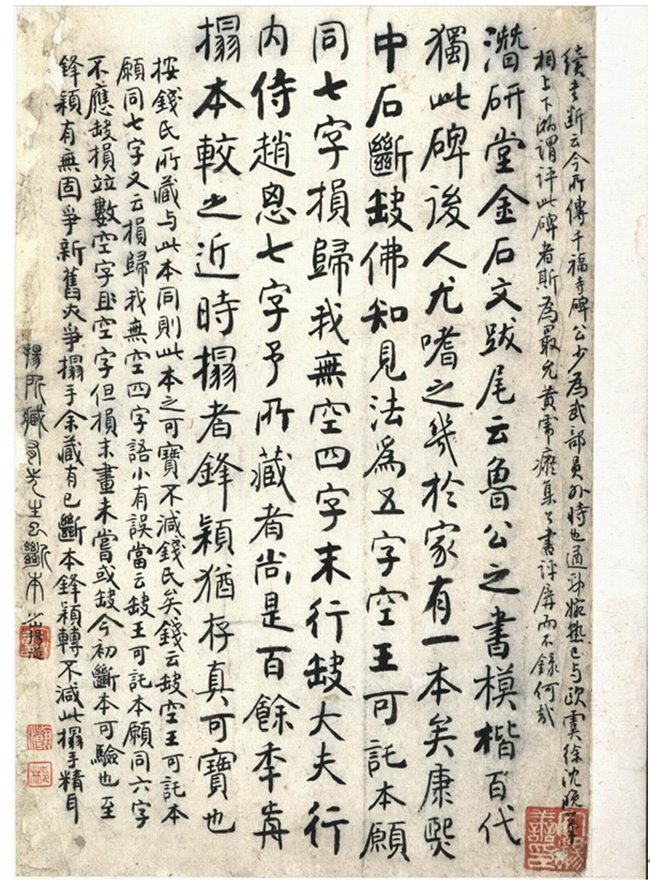 續書斷云今所傳千福寺碑公少為武部員外時也遒勁婉熟已与歐虞徐沈晚筆
相上下溈謂評此碑者斯為最允黃雷癡集公書評屏而不錄何哉
潛研堂金石文跋尾云魯公之書模楷百代
獨此碑後人尤嗜之幾於家有一本矣康熙
中石斷缺佛知見法為五字空王可託本願
同七字損歸我無空四字末行缺大夫行
內侍趙思七字予所藏者尚是百餘年前
搨本較之近時搨者鋒穎猶存真可寶也
按錢氏所藏与此本同則此本之可寶不減錢氏矣錢云缺空王可託本
願同七字又云損歸我無空四字語小有誤當云缺王可託本願同六字
不應缺損竝數空字且空字但損末畫未嘗或缺今初斷本可驗也至
鋒穎有無固爭新舊亦爭搨手余藏有已斷本鋒穎轉不減此搨手精耳
揚所藏先生已斷本